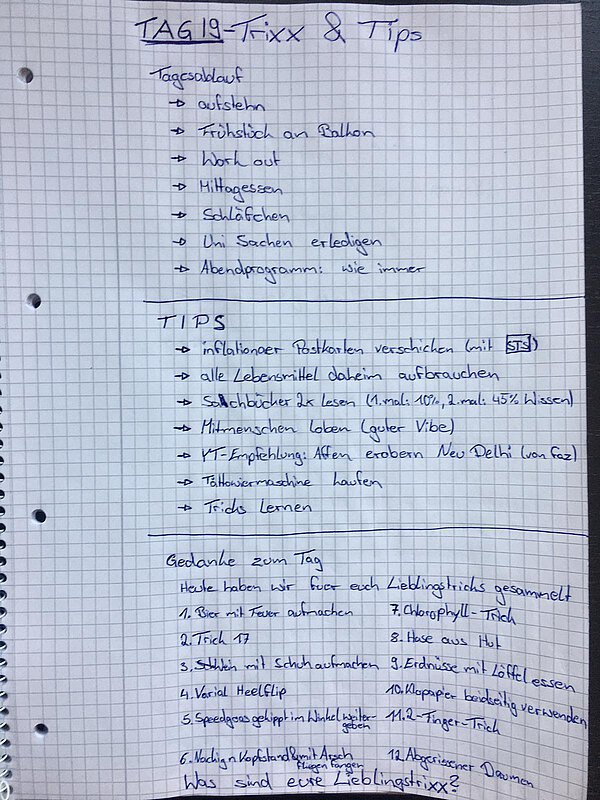 TAG 19 - Trixx & Tips
Tagesablauf
→ aufstehn
→ Frühstück an Balkon
→ Work out
→ Mittagessen
→ Schläfchen
→ Uni Sachen erledigen
→ Abendprogramm: wie immer
TIPS
→ inflationaer Postkarten verschicken (mit STS)
→ alle Lebensmittel daheim aufbrauchen
→ Sachbücher 2x lesen (1.mal: 10%, 2.mal: 45% Wissen)
→ Mitmenschen loben (guter Vibe)
→ YT-Empfehlung: Affen erobern Neu Delhi (von Faz)
→ Tättowiermaschine kaufen
→ Tricks lernen
Gedanke zum Tag
Heute haben wir fuer euch Lieblingstricks gesammelt
1. Bier mit Feuer aufmachen
2. Trick 17
3. mit Schuh aufmachen
4. Varial Heelflip
5. Speedgoas gekippt im Winkel weiter-
geben
6. Nackig n Kopfstand & mit Arsch
fliegen fangen
7. Chlorophyll-Trick
8. Hase aus Hut
9. Erdnüsse mit Löffel essen
10. Klopaper beidseitig verwenden
11. 2-Finger-Trick
12. Abgerissener Daumen
Was sind eure Lieblingstrixx?